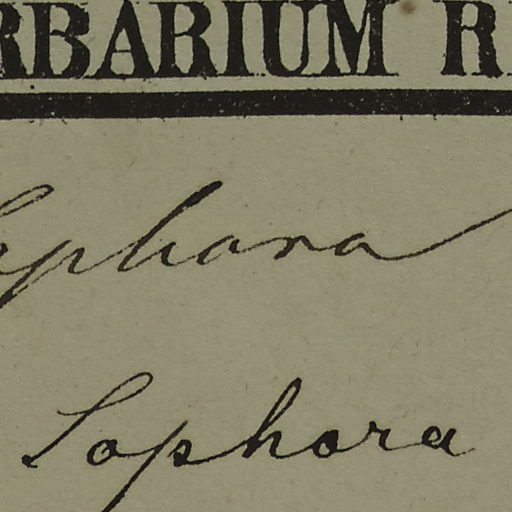 RBARIUM R
ophora
Sophora